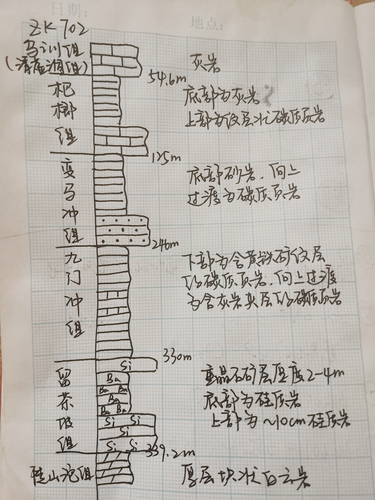 日期:
地点:
ZK702
(清虚洞组)
灰岩
54.6m
杷
榔
组
底部为灰岩
上部为纹层状碳质页岩
125m
变
马
冲
组
底部砂岩,向上
过渡为碳质页岩
246m
九
门
冲
组
下部为含黄铁矿纹层
的碳质页岩,向上过渡
为含灰岩夹层的碳质页岩
330m
留
茶
坡
组
Si
Ba
Ba Ba
Ba
Ba Ba
Si Si
Si
Si Si
重晶石矿层厚度2-4m
底部为硅质岩
上部为~10cm硅质岩
339.2m
组
厚层块状白云岩